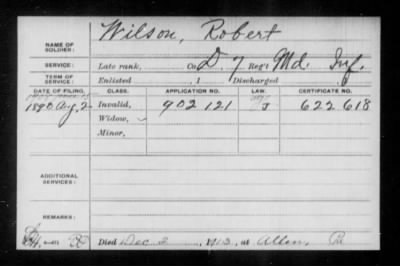 Wilson, Robert
NAME OF SOLDIER:
SERVICE: Late rank, Co. D, 7 Reg't Md. Inf.
TERM OF SERVICE: Enlisted , 1 Discharged
DATE OF FILING. CLASS. APPLICATION NO. LAW. CERTIFICATE NO.
1890 Aug. 2 Invalid, 902 121 J 622 618
Widow,
Minor,
ADDITIONAL SERVICES:
REMARKS:
Died Dec 2, 1913, at Allen, Pa